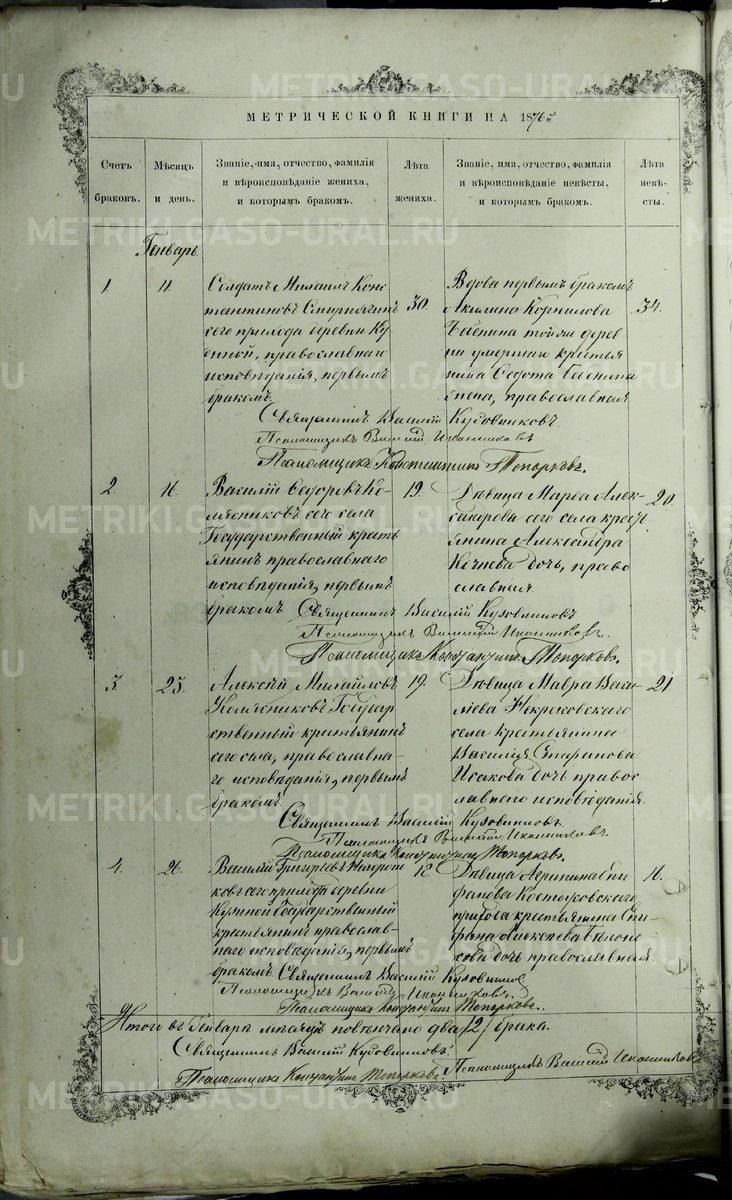 МЕТРИЧЕСКОЙ КНИГИ НА 1876 й
Счетъ браковъ.
Мѣсяцъ и день.
Званіе, имя, отчество, фамилія
и вѣроисповѣданіе жениха,
и которымъ бракомъ.
Лѣта
жениха.
Званіе, имя, отчество, фамилія
и вѣроисповѣданіе невѣсты,
и которымъ бракомъ.
Лѣта
невѣ-
сты.
Генварь
1. 11.
Солдатъ Михаилъ Конс
тантиновъ
сего прихода деревни Ку
, православнаго
исповѣданія, первымъ
бракомъ.
30.
Вдова первымъ бракомъ
Акилина Корнилова
Бабкина тойже дерев
ни умершаго крестья
нина Федота Бабкина
жена, православная
34.
Священникъ Василій Кузовниковъ
Псаломщикъ Василій Иконниковъ
Псаломщикъ Константинъ Топорковъ.
2. 16.
Василій Федоровъ Ко
лясниковъ сего села
Государственный кресть
янинъ православнаго
исповѣданія, первымъ
бракомъ.
19.
Дѣвица Марѳа Алек-
сандрова сего села кресть
янина Александра
дочь, право
славная.
20.
Священникъ Василій Кузовниковъ
Псаломщикъ Василій Иконниковъ.
Псаломщикъ Константинъ Топорковъ.
3. 25.
Алексѣй Михайловъ
Колясниковъ Государ
ственный крестьянинъ
сего села, православна-
го исповѣданія, первымъ
бракомъ.
19.
Дѣвица Мавра Васи
льева
села крестьянина
Василія
Исакова дочь правос
лавнаго исповѣданія.
21.
Священникъ Василій Кузовниковъ.
Псаломщикъ Василій Иконниковъ.
Псаломщикъ Константинъ Топорковъ.
4. 26.
Василій Григорьевъ
ковъ сего прихода деревни
Государственный
крестьянинъ православ-
наго исповѣданія, первымъ
бракомъ
18.
Дѣвица Агрипина Епи
фанова
прихода крестьянина Епи-
фана
дочь православная.
Священникъ Василій Кузовниковъ
Псаломщикъ Василій Иконниковъ.
Псаломщикъ Константинъ Топорковъ.
Итого въ Генварѣ мѣсяцѣ повѣнчано два /2/ брака.
Священникъ Василій Кузовниковъ
Псаломщикъ Василій Иконниковъ
Псаломщикъ Константинъ Топорковъ.
METRIKI.GASO-URAL.RU